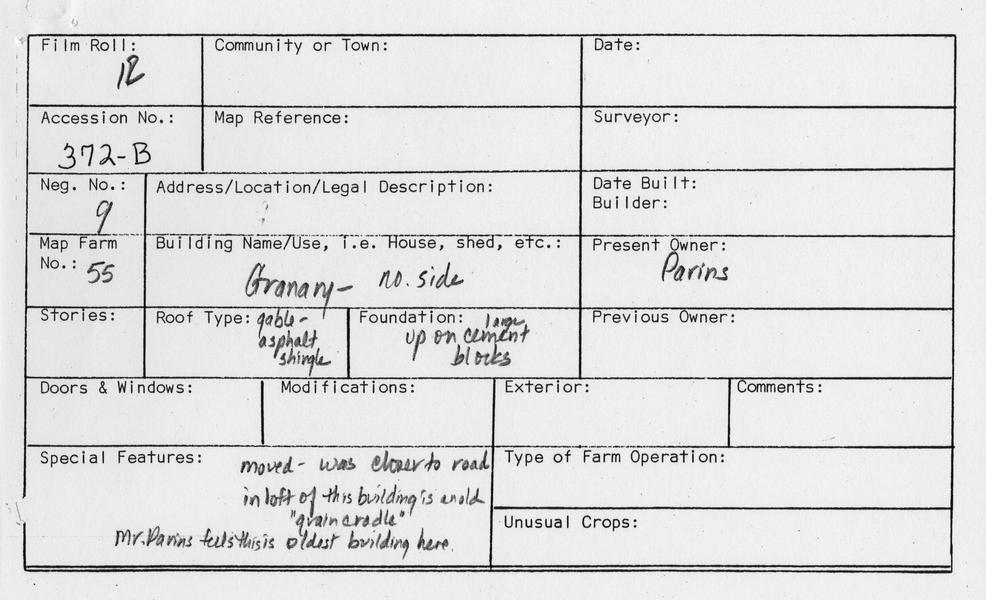 Film Roll:
12
Community or Town:
Date:
Accession No.:
372-B
Map Reference:
Surveyor:
Neg. No.:
9
Address/Location/Legal Description:
Date Built:
Builder:
Map Farm
No.: 55
Building Name/Use, i.e. House, shed, etc.:
Granary - no. side
Present Owner:
Parins
Stories:
Roof Type: gable -
asphalt
shingle
Foundation: large
up on cement
blocks
Previous Owner:
Doors & Windows:
Modifications:
Exterior:
Comments:
Special Features:
moved - was closer to road
in loft of this building is an old
"grain cradle"
Mr. Parins feels this is oldest building here.
Type of Farm Operation:
Unusual Crops: